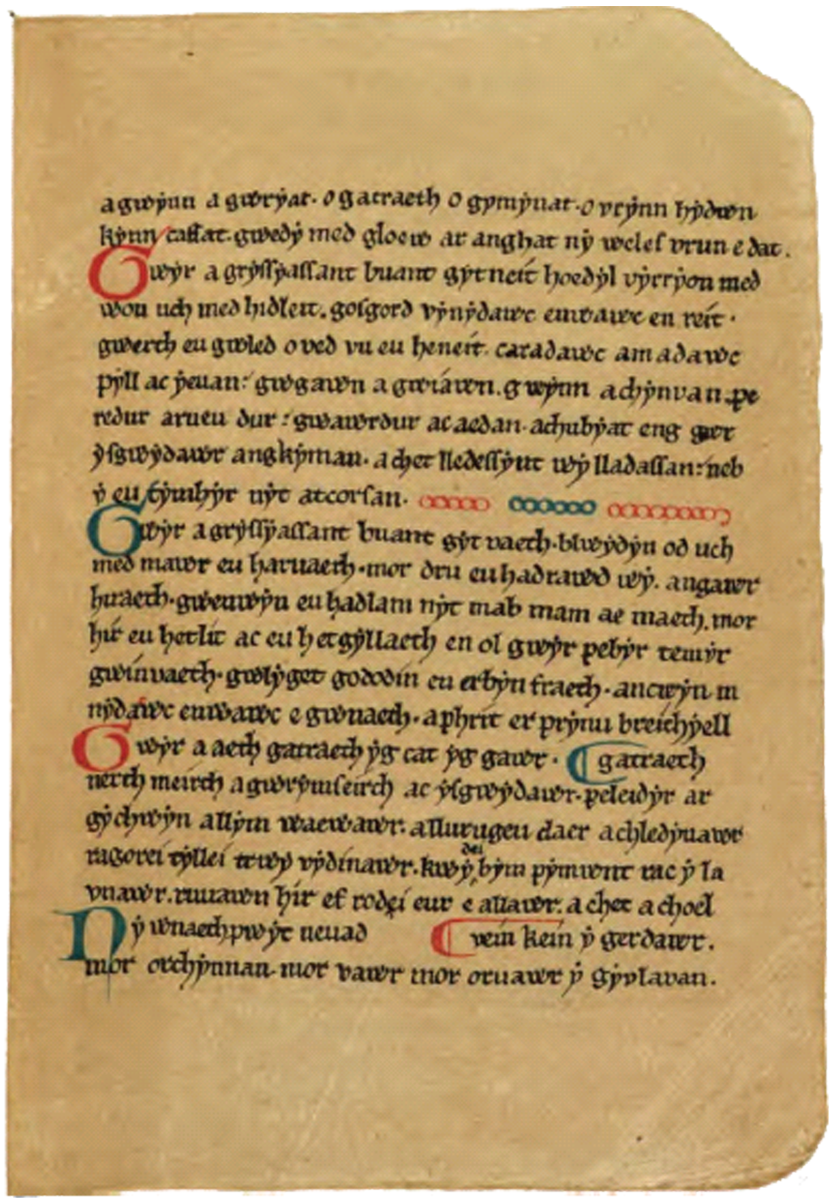 a gwẏnn a gwrẏat. o gatraeth o gẏmẏnat. o vrẏnn hẏdwn
kẏnn caffat. gwedẏ med gloew ar anghat nẏ weles vrun e dat.
Gwẏr a grẏssẏassant buant gẏtneit hoedẏl vẏrrẏon med
won uch med hidleit. gosgord vẏnẏdawc enwawc en reit.
gwerth eu gwled o ved vu eu heneit. caradawc amadawc
pẏll ac ẏeuan. gwgawn a gwiawn. gwẏnn a chẏnvan. pe
redur arueu dur. gwawrdur ac aedan. achubẏat eng gawr
ẏsgwẏdawr angkẏman. a chet lledessẏnt wẏ lladassan. neb
ẏ eu tẏmhẏr nẏt atcorsan.
Gwẏr a grẏssẏassant buant gẏt vaeth. blwẏdẏn od uch
med mawr eu haruaeth. mor dru eu hadrawd wẏ. angawr
hiraeth. gwenwẏn eu hadlam nẏt mab mam ae maeth. mor
hir eu hetlit ac eu hetgẏllaeth en ol gwẏr pebẏr temẏr
gwinvaeth. gwlẏget gododin en erbẏn fraeth. ancwẏn m
nẏdawc enwawc e gwnaeth. a phrit er prẏnu breithẏell
Gwẏr a aeth gatraeth ẏg cat ẏg gawr. gatraeth
nerth meirch a gwrẏmseirch ac ẏsgwẏdawr. peleidẏr ar
gẏchwẏn a llẏm waewawr. a llurugeu claer a chledẏuawr
ragorei tẏllei trwẏ vẏdinawr. kwẏdei bẏm pẏmwnt rac ẏ la
vnawr. ruuawn hir ef rodei eur e allawr. a chet a choel
Nẏ wnaethpwẏt neuad vein kein ẏ gerdawr.
mor orchẏnnan. mor vawr mor oruawr ẏ gẏvlavan.